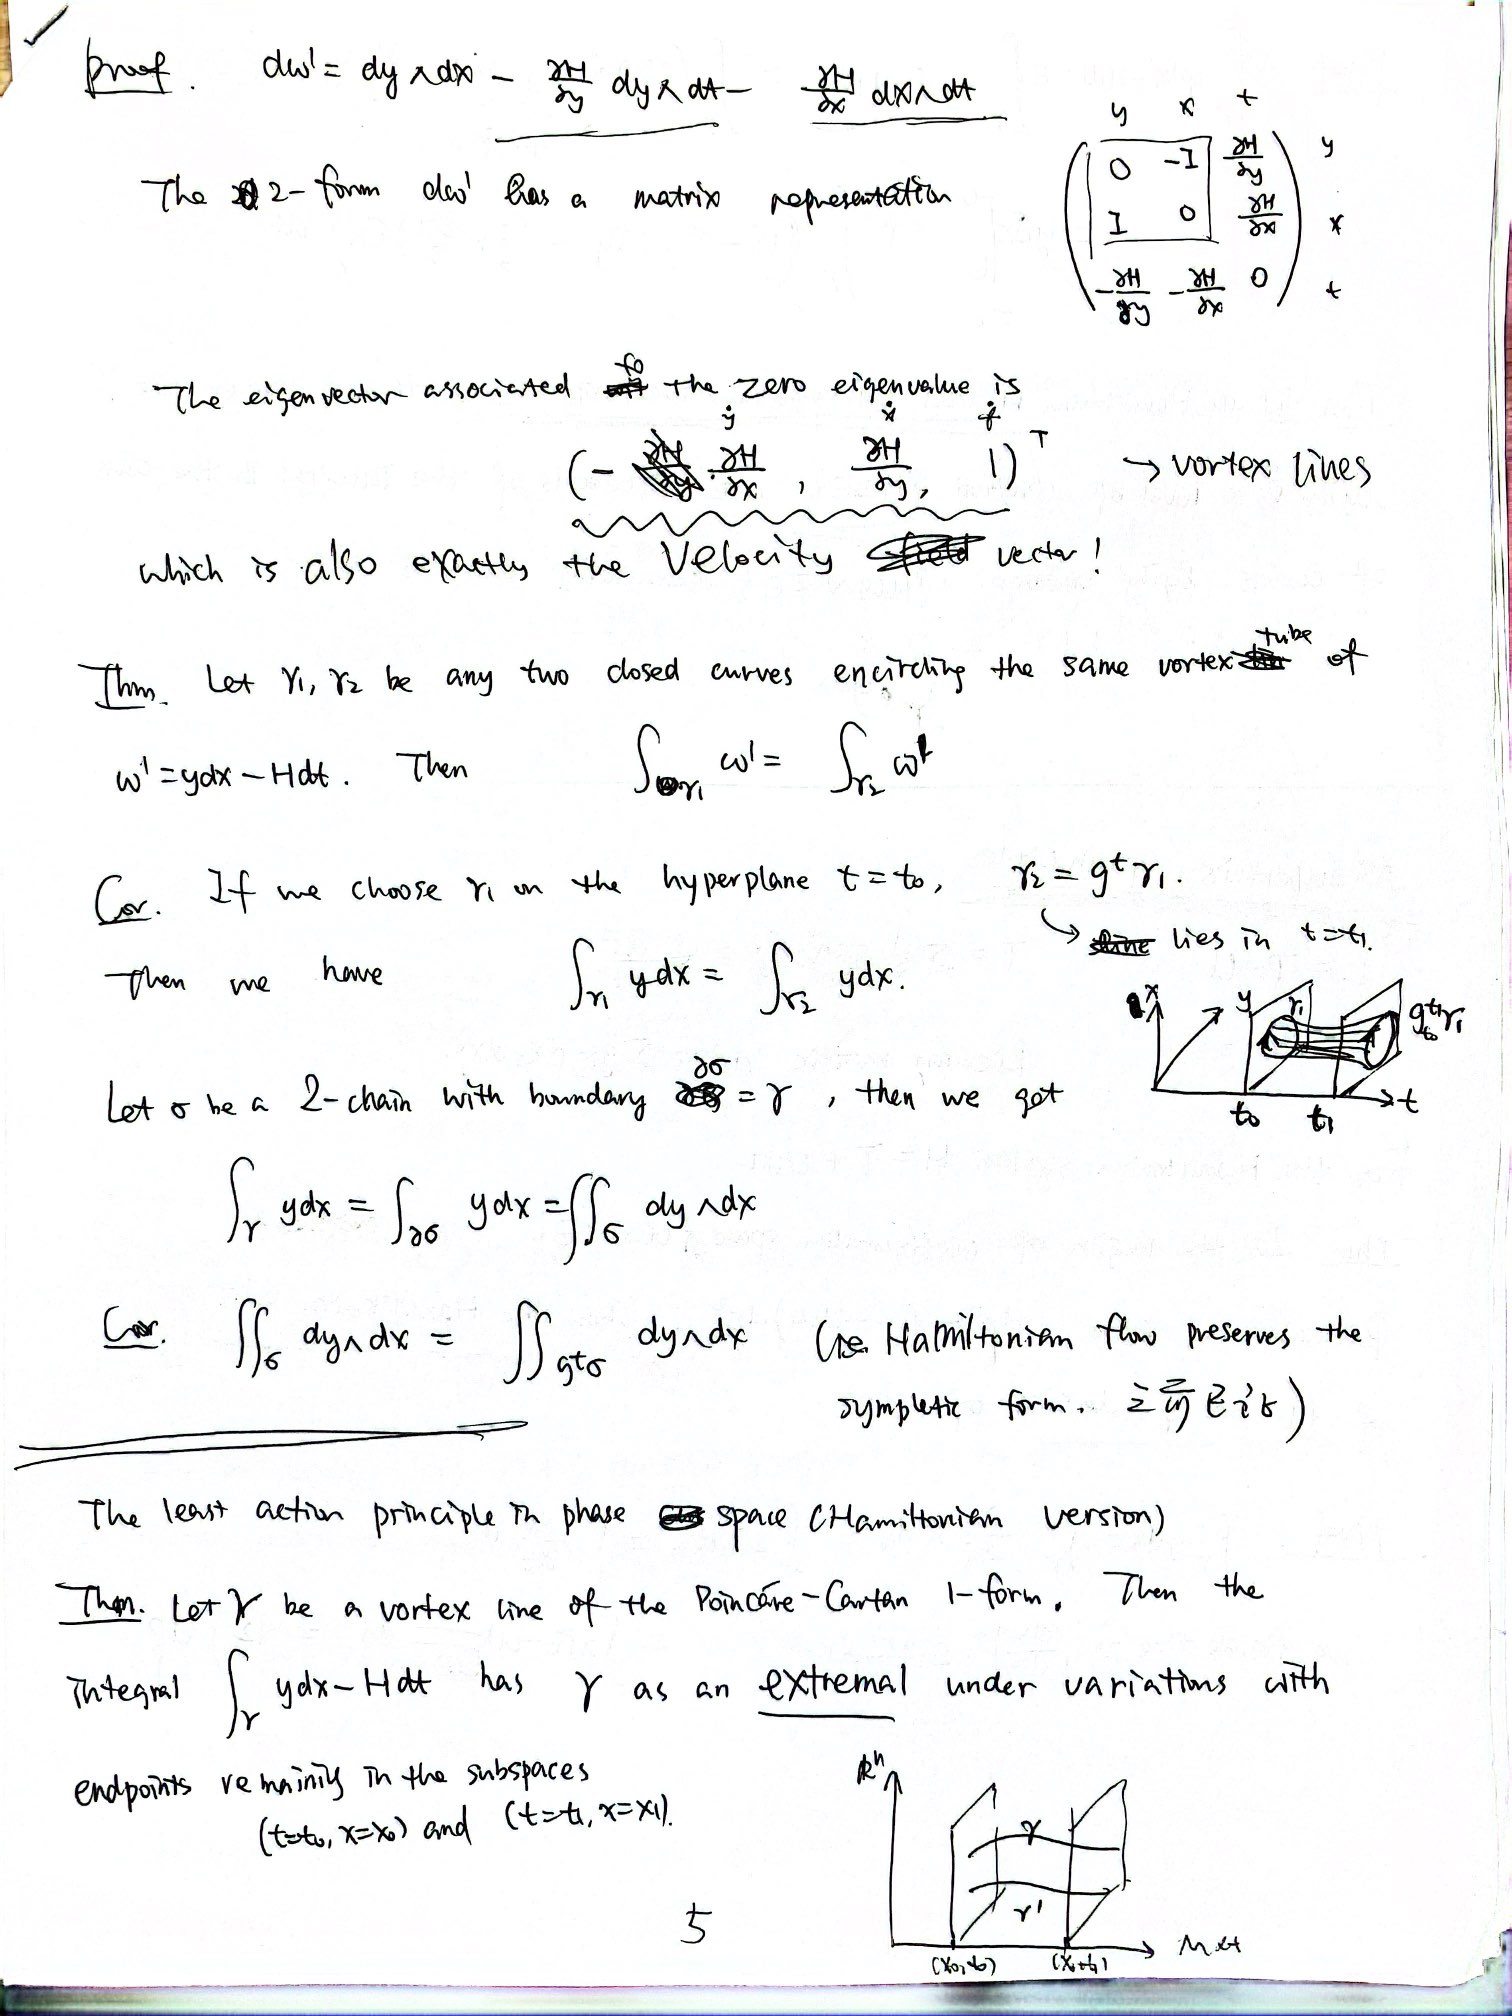 proof. dω' = dy ∧ dx − ∂H/∂y dy ∧ dt − ∂H/∂x dx ∧ dt
y x t
0 −I ∂H/∂y y
The 2-form dω' has a matrix representation
I 0 ∂H/∂x x
−∂H/∂y −∂H/∂x 0 t
The eigenvector associated to the zero eigenvalue is
ẏ ẋ ṫ
(− ∂H/∂x , ∂H/∂y, 1)ᵀ → vortex lines
which is also exactly the velocity vector!
Thm. Let γ₁, γ₂ be any two closed curves encircling the same vortex tube of
ω' = ydx − Hdt. Then ∫γ₁ ω' = ∫γ₂ ω'
Cor. If we choose γ₁ on the hyperplane t = t₀, γ₂ = gᵗγ₁.
↳ lies in t = t₁.
Then we have ∫γ₁ ydx = ∫γ₂ ydx.
x y γ₁ t₀ t₁ t
Let σ be a 2-chain with boundary ∂σ = γ, then we got
∫γ ydx = ∫∂σ ydx = ∬σ dy ∧ dx
Cor. ∬σ dy ∧ dx = ∬gᵗσ dy ∧ dx (i.e. Halmiltonian flow preserves the
sympletic form.
The least action principle in phase space (Hamiltonian version)
Thm. Let γ be a vortex line of the Poincáre-Cartan 1-form. Then the
integral ∫γ ydx − Hdt has γ as an extremal under variations with
endpoints remaining in the subspaces
(t=t₀, x=x₀) and (t=t₁, x=x₁).
Rⁿ
γ
γ'
(x₀,t₀) (x₁,t₁)
5